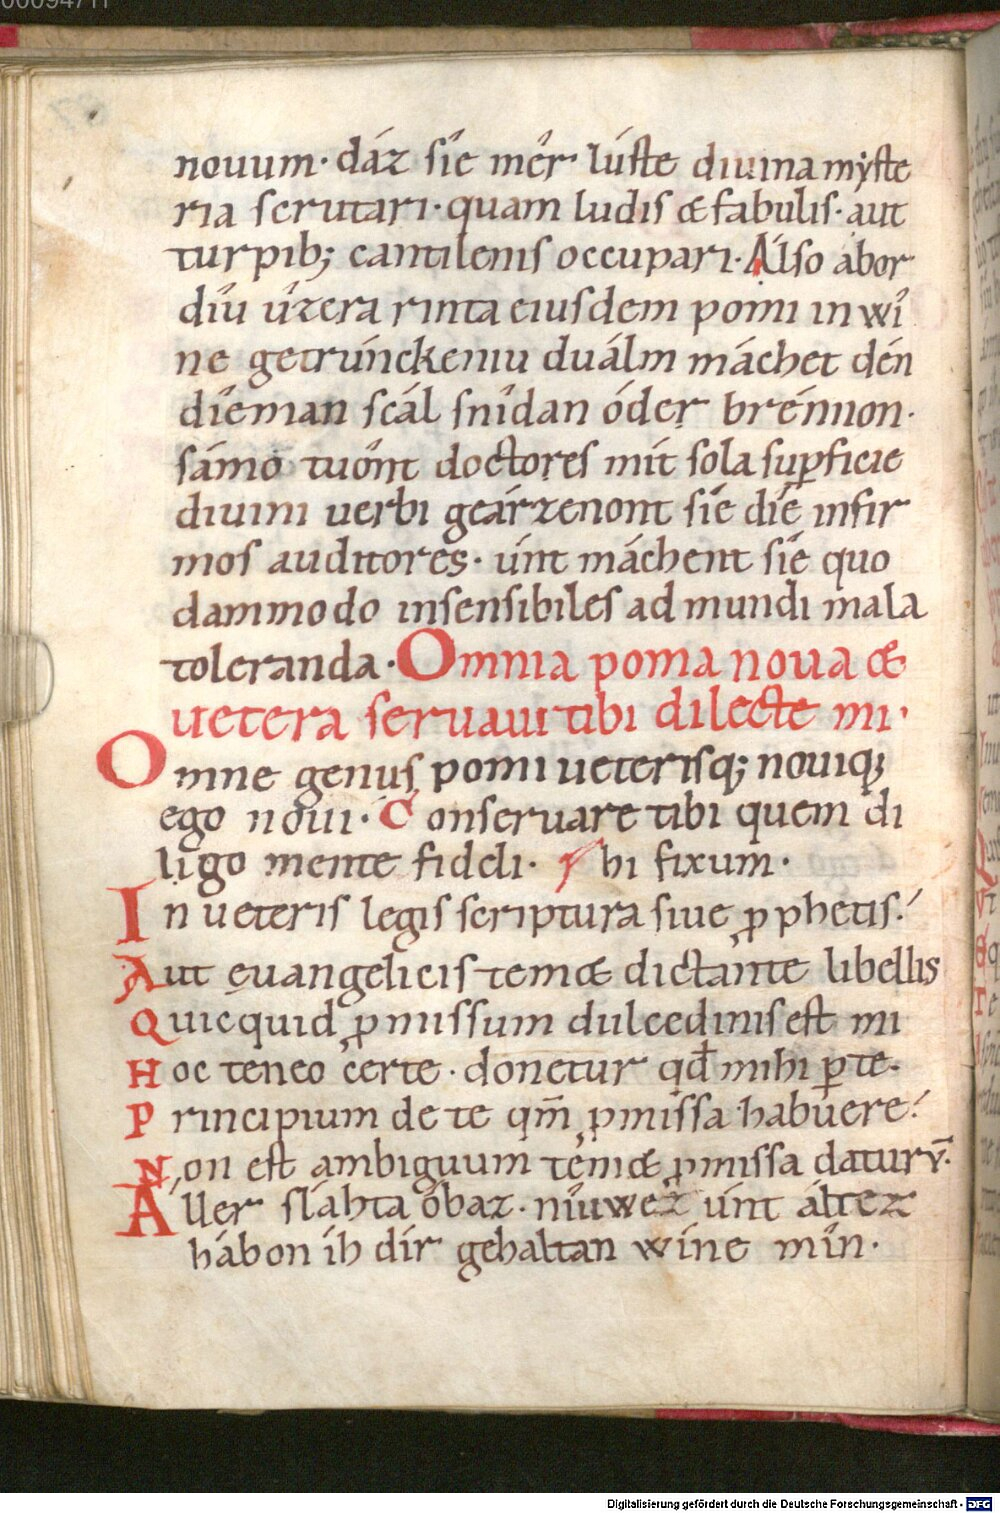 nouum· dáz síe mêr lúste diuina myste
ria scrutari· quam ludis & fabulis· aut
turpib; cantilenis occupari· Also abor
díu úzera rinta eiusdem pomi in wî
ne getrúnckeniu duálm máchet dén
dîeman scál snîdan óder brénnon·
sámo tuônt doctores mit sola supficie
diuini uerbi geárzenont sîe díe infir
mos auditores· únt máchent síe quo
dammodo insensibiles ad mundi mala
toleranda· Omnia poma noua &
uetera seruaui tibi dilecte mi·
Omne genus pomi ueterisq; nouiq;
ego noui· Conseruare tibi quem di
ligo mente fideli· bi fixum·
In ueteris legis scriptura siue pphetis·
Aut ęuangelicis tem& dictante libellis
Quicquid pmissum dulcedinis est mi
Hoc teneo certe· donetur qđ mihi p te·
Principium de te qm̄ pmissa habuere·
Non est ambiguum tem& pmissa daturū·
Aller sláhta óbaz· níuwez únt áltez
hábon íh dír gehaltan wíne mîn·
Digitalisierung gefördert durch die Deutsche Forschungsgemeinschaft - DFG